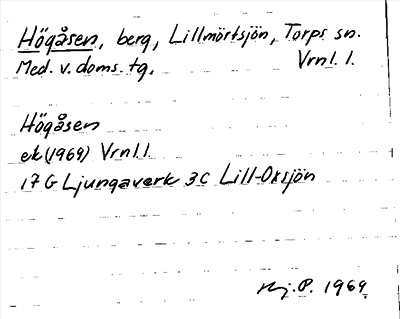 Högåsen, berg, Lillmörtsjön, Torps sn.
Med. v. doms. tg. Vrnl. l.
Högåsen
ek (1969) Vrnl l
17 G Ljungaverk 3 C Lill-Oxsjön
Hj. P. 1969.